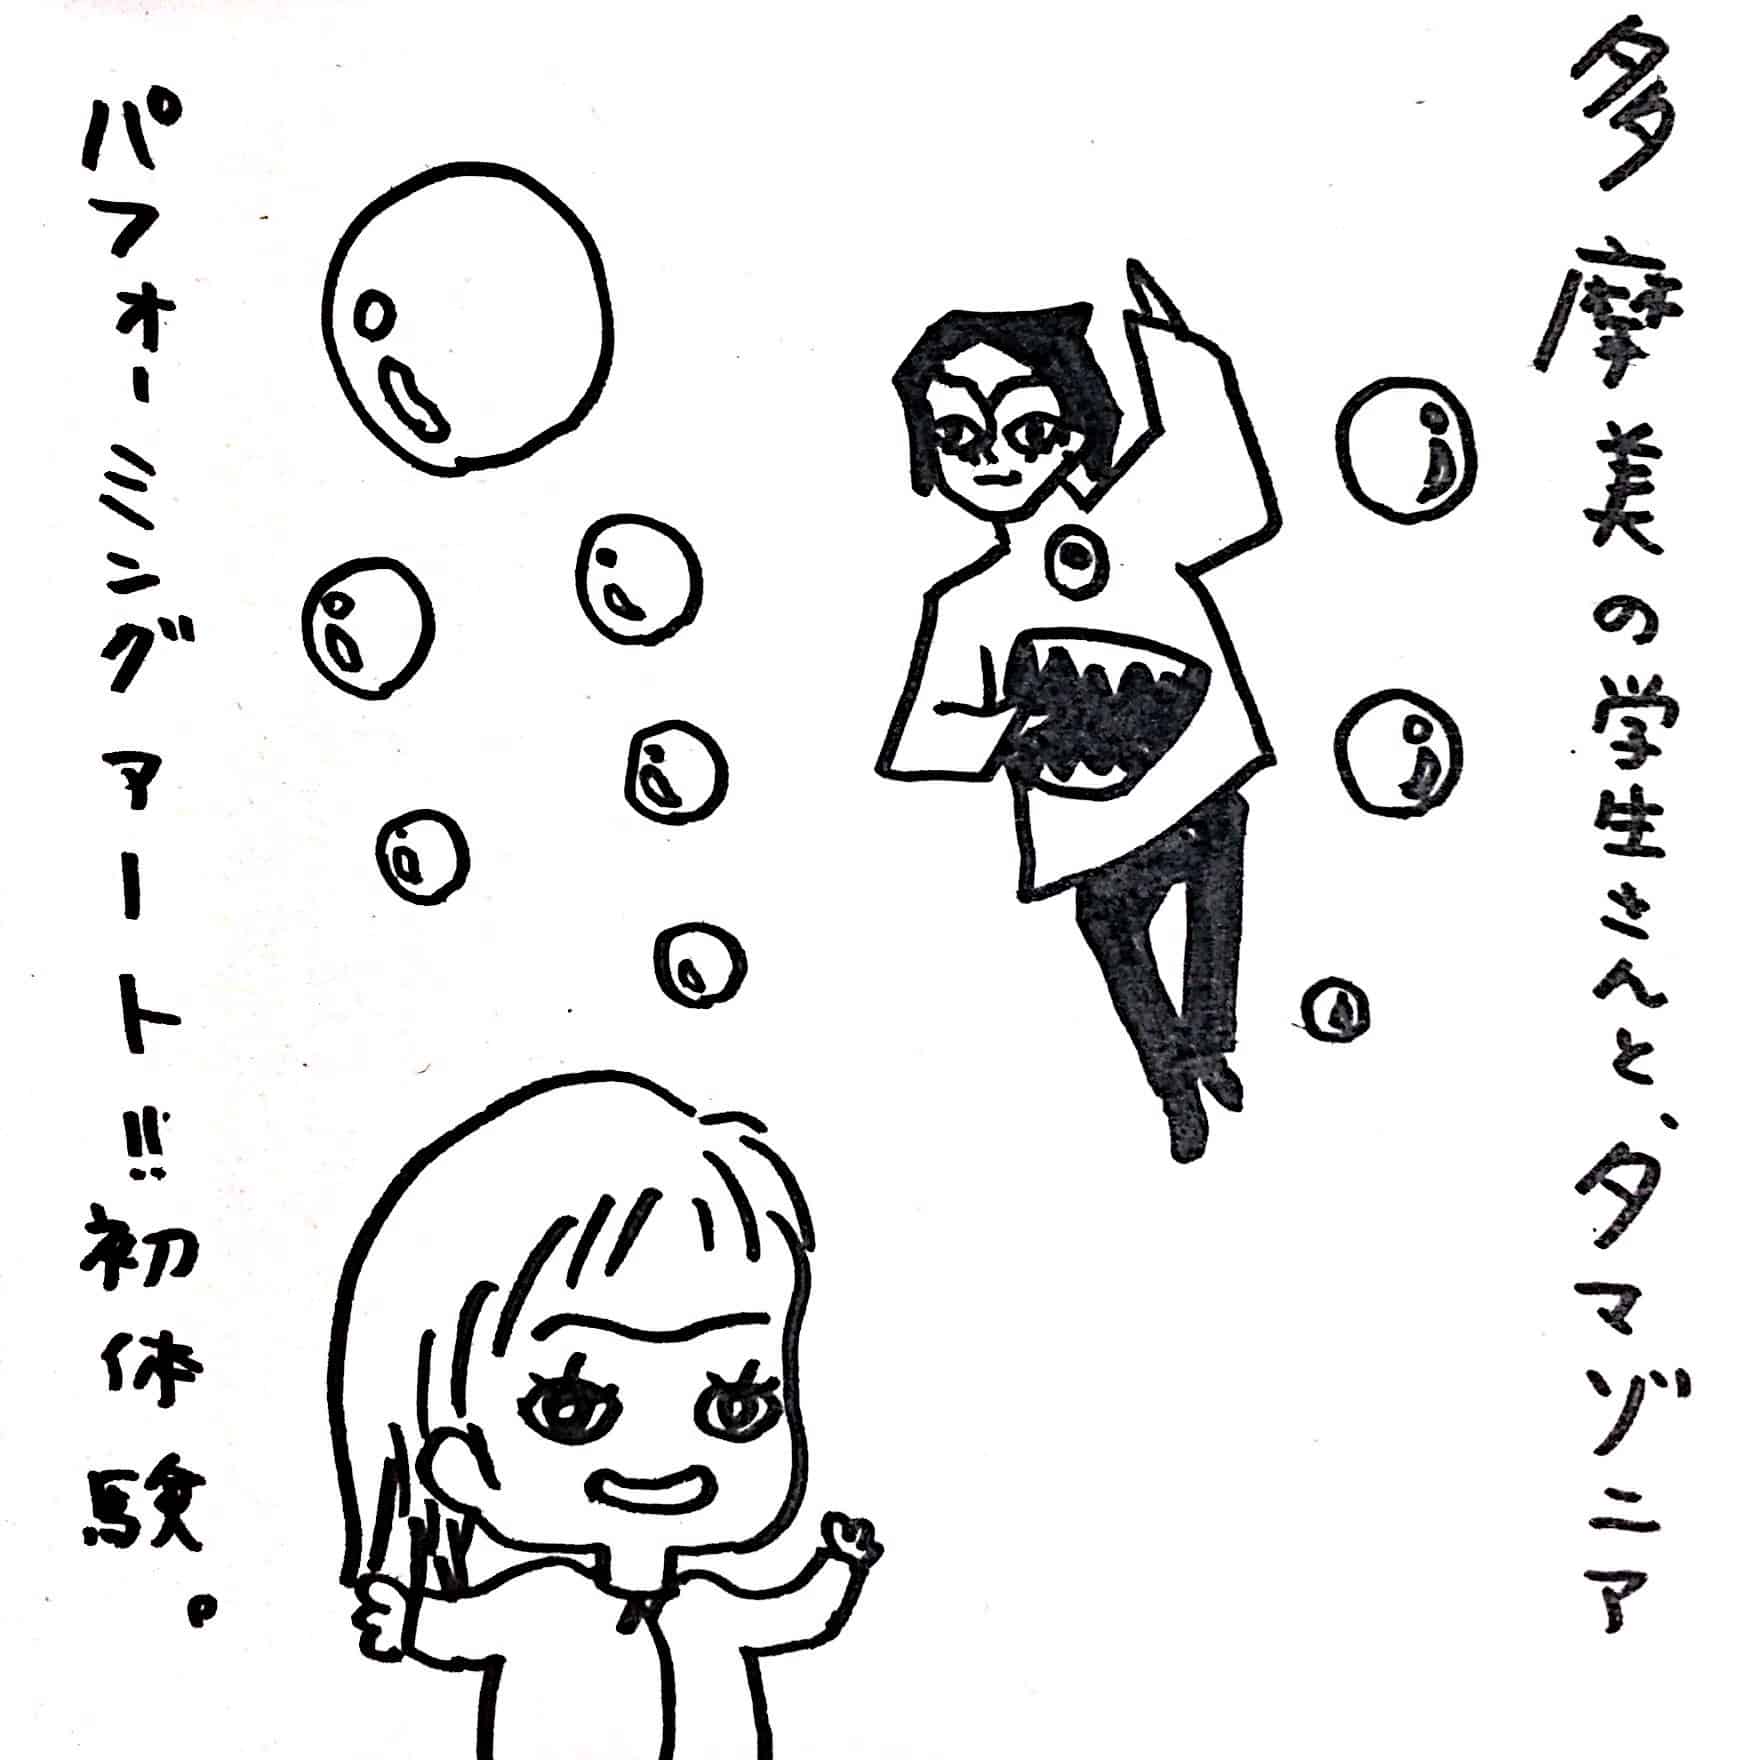 多摩美の学生さんと、タマゾニア
パフォーミングアート!!初体験。